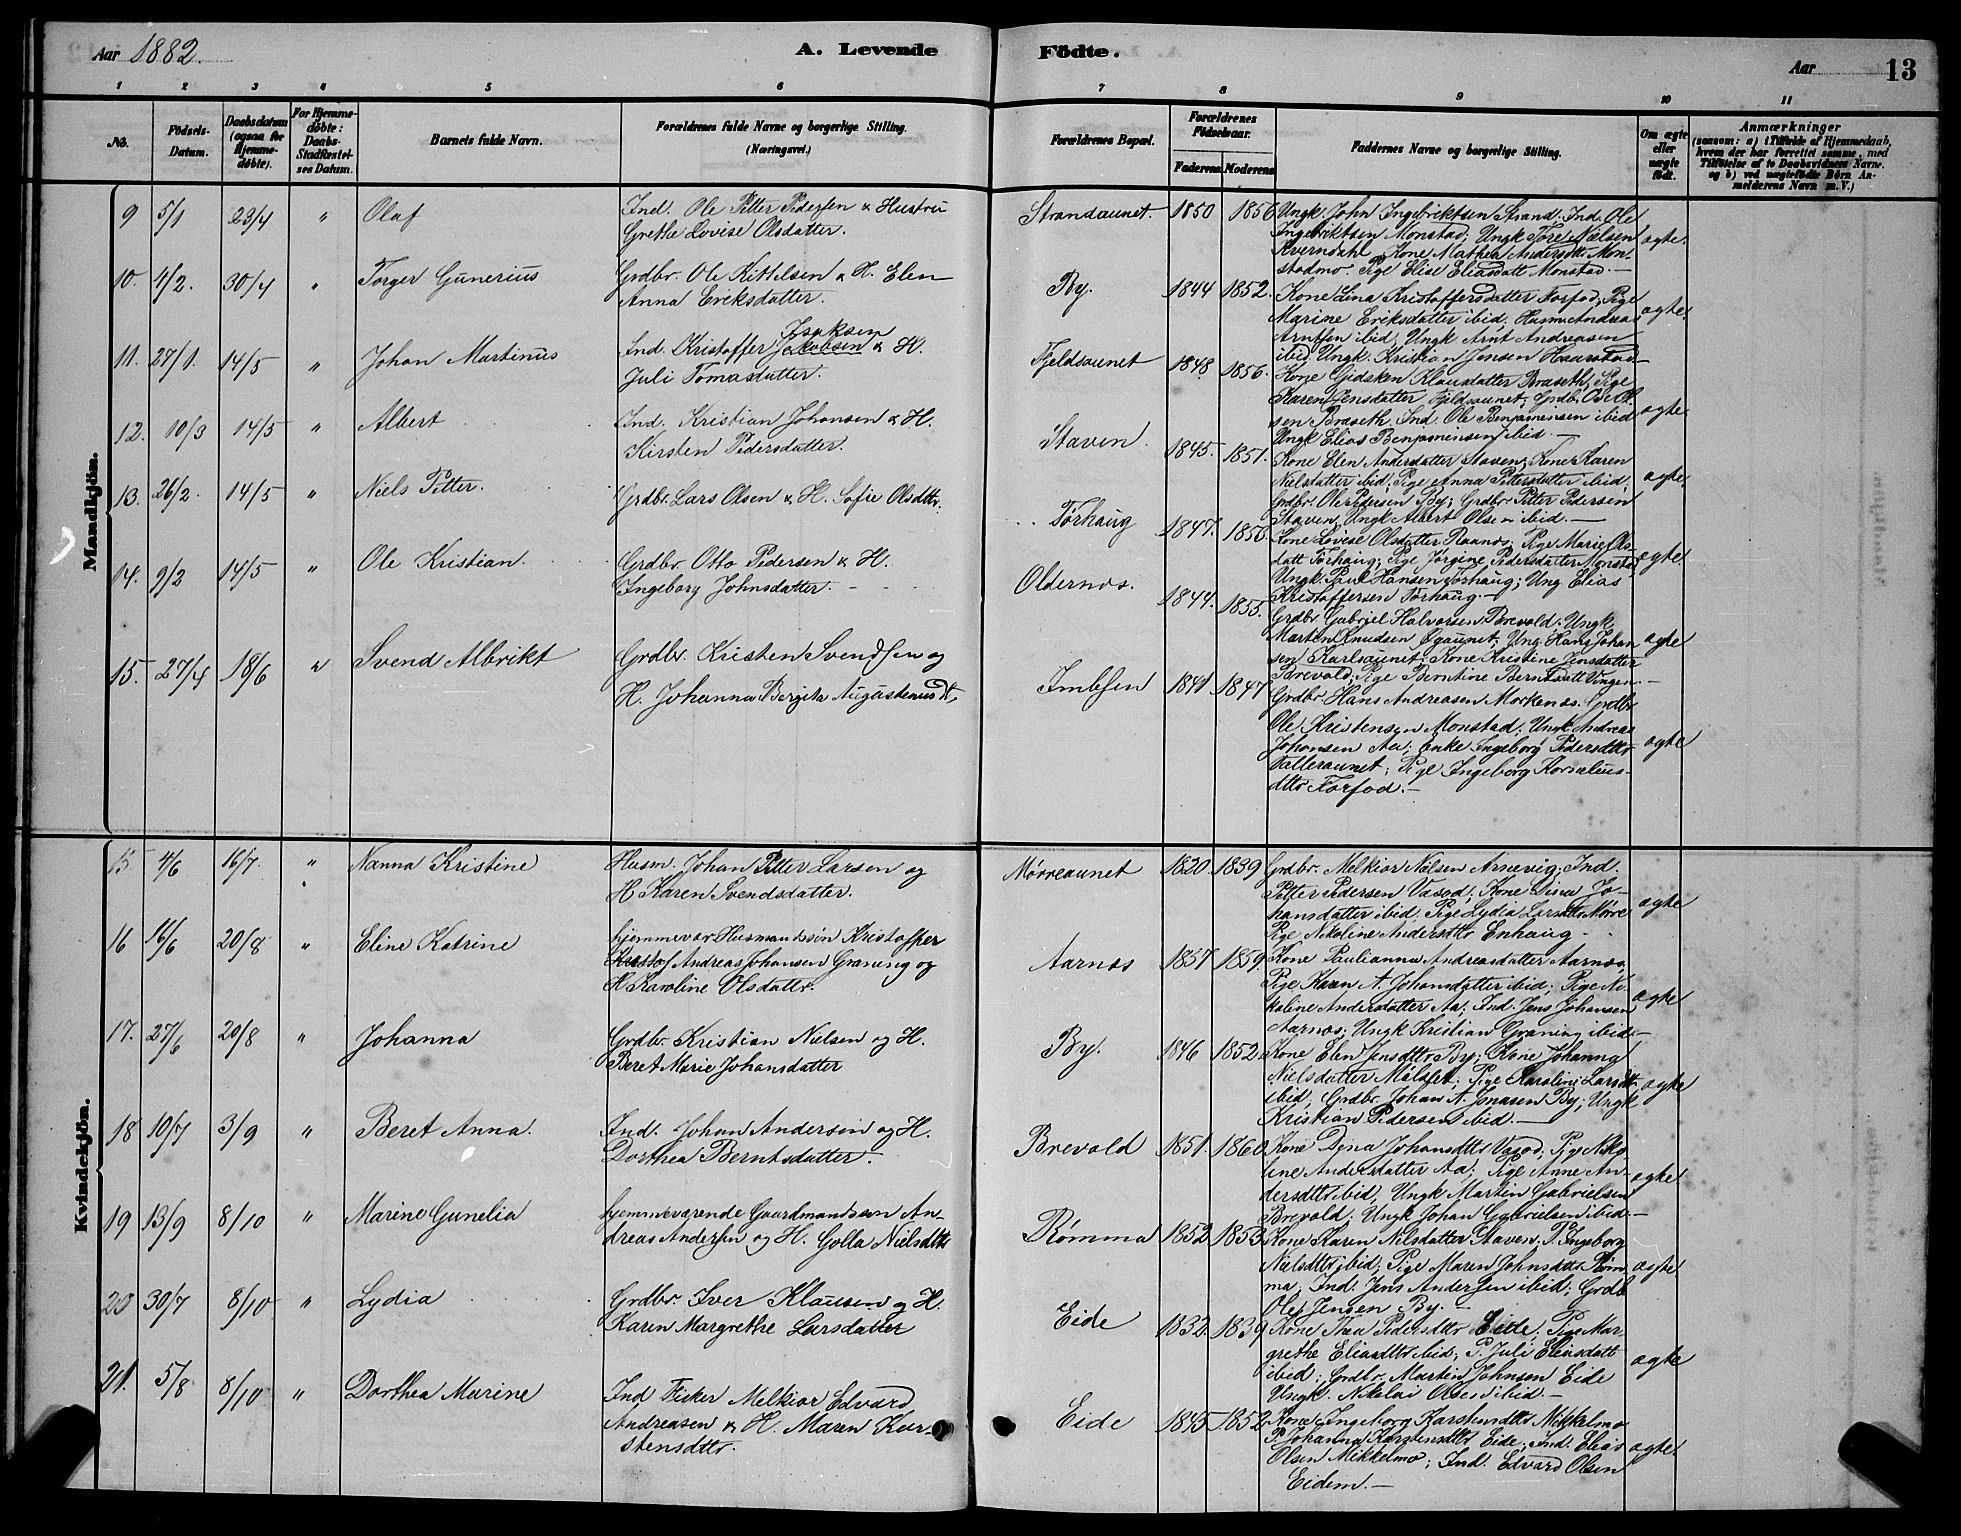 Aar 1882.
A. Levende
Födte.
Aar
13
1 2 3 4 5 6 7 8 9 10 11
No.
Födsels-Datum.
Daabsdatum (ogsaa for Hjemme-döbte).
For Hjemme-döbte: Daabs-Stadfæstel-ses Datum.
Barnets fulde Navn.
Forældrenes fulde Navne og borgerlige Stilling.
(Næringsvei.)
Forældrenes Bopæl.
Forældrenes Födselsaar.
Faderens Moderens
Faddernes Navne og borgerlige Stilling.
Om ægte eller uægte födt.
Anmærkninger
(saasom: a) i Tilfælde af Hjemmedaab,
hvem der har forrettet samme, med
Tilföielse af to Daabsvidners Navne.
og b) ved uægtefödte Börn An-
melderens Navn m. V.)
Mandkjön.
9 5/1 23/4 " Olaf
Ind. Ole Petter Pedersen & Hustru
Grethe Lovise Olsdatter.
Strandaunet. 1850 1856
Ungk. John Ingebriktsen Strand; Ind. Ole
Ingebriktsen Monstad; Ungk Tore Nielsen
Kverndahl, Kone Mathea Andersdttr Mon-
stadmo, Pige Elise Eliasdatt Monstad.—
ægte.
10. 4/2. 30/4 " Torger Gunerius
Grdbr. Ole Kittelsen & H. Elen
Anna Eriksdatter.
By. 1844 1852.
Kone Lina Kristoffersdatter Forfod, Pige
Marine Eriksdatter ibid, Husm. Andreas
Arntsen ibid, Ungk Arnt Andreasen
ibid, Ungk. Kristian Jensen Haarstad—
ægte.
11. 27/1. 14/5 " Johan Martinus
Isaksen
Ind. Kristoffer Jakobsen & H.
Juli Tomasdatter.
Fjeldsaunet 1848 1856.
Kone Gidsken Klausdatter Braseth, Pige
Karen Jensdatter Fjeldsaunet; Grdb. Ole Ol-
sen Braseth, Ind. Ole Benjaminsen ibid
Ungk Elias Benjaminsen ibid.—
ægte.
12. 10/3 14/5 " Albert
Ind. Kristian Johansen & H.
Kirsten Pedersdatter.
Staven. 1845. 1851.
Kone Elen Andersdatter Staven, Kone Karen
Nielsdatter ibid; Pige Anna Pettersdatter ibid;
Grdbr. Ole Pedersen By; Grdbr Petter Pedersen
Staven, Ungk Albert Olsen ibid.—
ægte.
13. 26/2. 14/5 " Niels Petter.
Grdbr. Lars Olsen & H. Sofie Olsdttr.
Torhaug 1847. 1850.
Kone Lovise Olsdatter Raanes; Pige Marie Ols-
datt Torhaug; Pige Jørgine Pedersdatter Monstad
Ungk Paul Hansen Torhaug; Ung Elias
Kristoffersen Torhaug.—
ægte
14. 9/2 14/5 " Ole Kristian.
Grdbr. Otto Pedersen & H.
Ingeborg Johnsdatter.
Oldernæs. 1844. 1855.
Grdbr Gabriel Halvorsen Brevold; Ungk
Morten Knudsen Øgaunet; Ung Hans Johan
sen Karlsaunet; Kone Kristine Jensdatter
Brevold; Pige Berntine Berntsdatt Vingen.—
ægte
15. 27/4 18/6 " Svend Albrikt
Grdbr. Kristen Svendsen og
H. Johanna Bergita Augustinusdt,
Imlesen 1841 1847
Grdbr Hans Andreasen Morkenæs. Grdbr
Ole Kristensen Monstad, Ungk Andreas
Johansen Aa; Enke Ingeborg Pedersdttr
Talleraunet; Pige Ingeborg Korselius-
dttr Forfod.—
ægte
Kvindekjön.
15 4/6 16/7. " Nanna Kristine
Husm. Johan Petter Larsen og
H Karen Svendsdatter.
Mørreaunet 1820 1839
Grdbr. Melkior Nielsen Arnevig; Ind.
Petter Pedersen Vasød; Kone Dina Jo-
hansdatter ibid; Pige Lydia Larsdttr Mørre
Pige Nikoline Andersdttr Enhaug
ægte
16 16/6 20/8 " Eline Katrine
hjemmevær Husmandssön Kristoffer
Kristof Andreas Johansen Graning og
H Karoline Olsdatter.
Aarnæs 1857 1859.
Kone Paulianna Andreasdatter Aarnæs,
Pige Karen A. Johansdatter ibid; Pige Ni-
koline Andersdatter Aa; Ind. Jens Johansen
Aarnæs; Ungk Kristian Graning ibid.—
ægte
17. 27/6 20/8 " Johanna
Grdbr. Kristian Nielsen og H.
Beret Marie Johansdatter
By. 1846 1852.
Kone Elen Jensdttr By; Kone Johanna
Nielsdatter Målset; Pige Karoline Larsdt
ibid; Grdbr. Johan A. Jonasen By; Ungk
Kristian Pedersen ibid.—
ægte
18 10/7 3/9 " Beret Anna.
Ind. Johan Andersen og H.
Dorthea Berntsdatter.—
Brevold 1851. 1860
Kone Dina Johansdttr Vasød, Pige Niko
line Andersdatter Aa; Pige Anne An-
dersdttr ibid, Ungk Martin Gabrielsen
Brevold. Ungk Johan Gabrielsen ibid.—
ægte
19 13/9 8/10 " Marine Gunelia
hjemmeværende Gaardmandssøn An-
dreas Andersen og H. Golla Nielsdttr
Rømma 1852 1853
Kone Karen Nilsdatter Staven. P. Ingeborg
Nielsdttr ibid; Pige Maren Johnsdttr Røm
ma; Ind. Jens Andersen ibid; Grdb
Ole Jensen By.—
ægte
20 30/7 8/10 " Lydia
Grdbr. Iver Klausen og H.
Karen Margrethe Larsdatter
Eide 1832. 1839
Kone Thea Pedersdttr Eide; Pige Mar-
grethe Eliasdttr ibid; P. Juli Eliasdatt
ibid; Grdbr. Martin Johnsen Eide
Ungk. Nikolai Olsen ibid.—
ægte
21. 5/8 8/10 " Dorthea Marine
Ind Fisker Melkior Edvard
Andreasen & H. Maren Kar-
stensdttr.
Eide 1845 1852
Kone Ingeborg Karstensdttr Mikkelmo
P. Johanna Karstensdttr Eide; Ind. Elias
Olsen Mikkelmo; Ind. Edvard Olsen
Eidem.—
ægte.